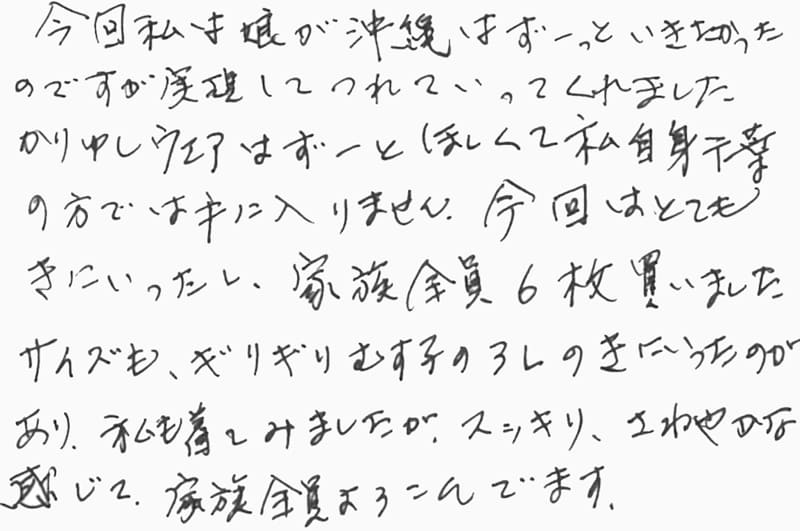 今回私は娘が沖縄はずーっといきたかった
のですが実現してつれていってくれました
かりゆしウェアはずーとほしくて私自身千葉
の方では手に入りません。今回はとても
きにいったし、家族全員6枚買いました
サイズも、ギリギリむす子の3Lのきにいったのが
あり、私も着てみましたが、スッキリ、さわやかな
感じで、家族全員よろこんでます。